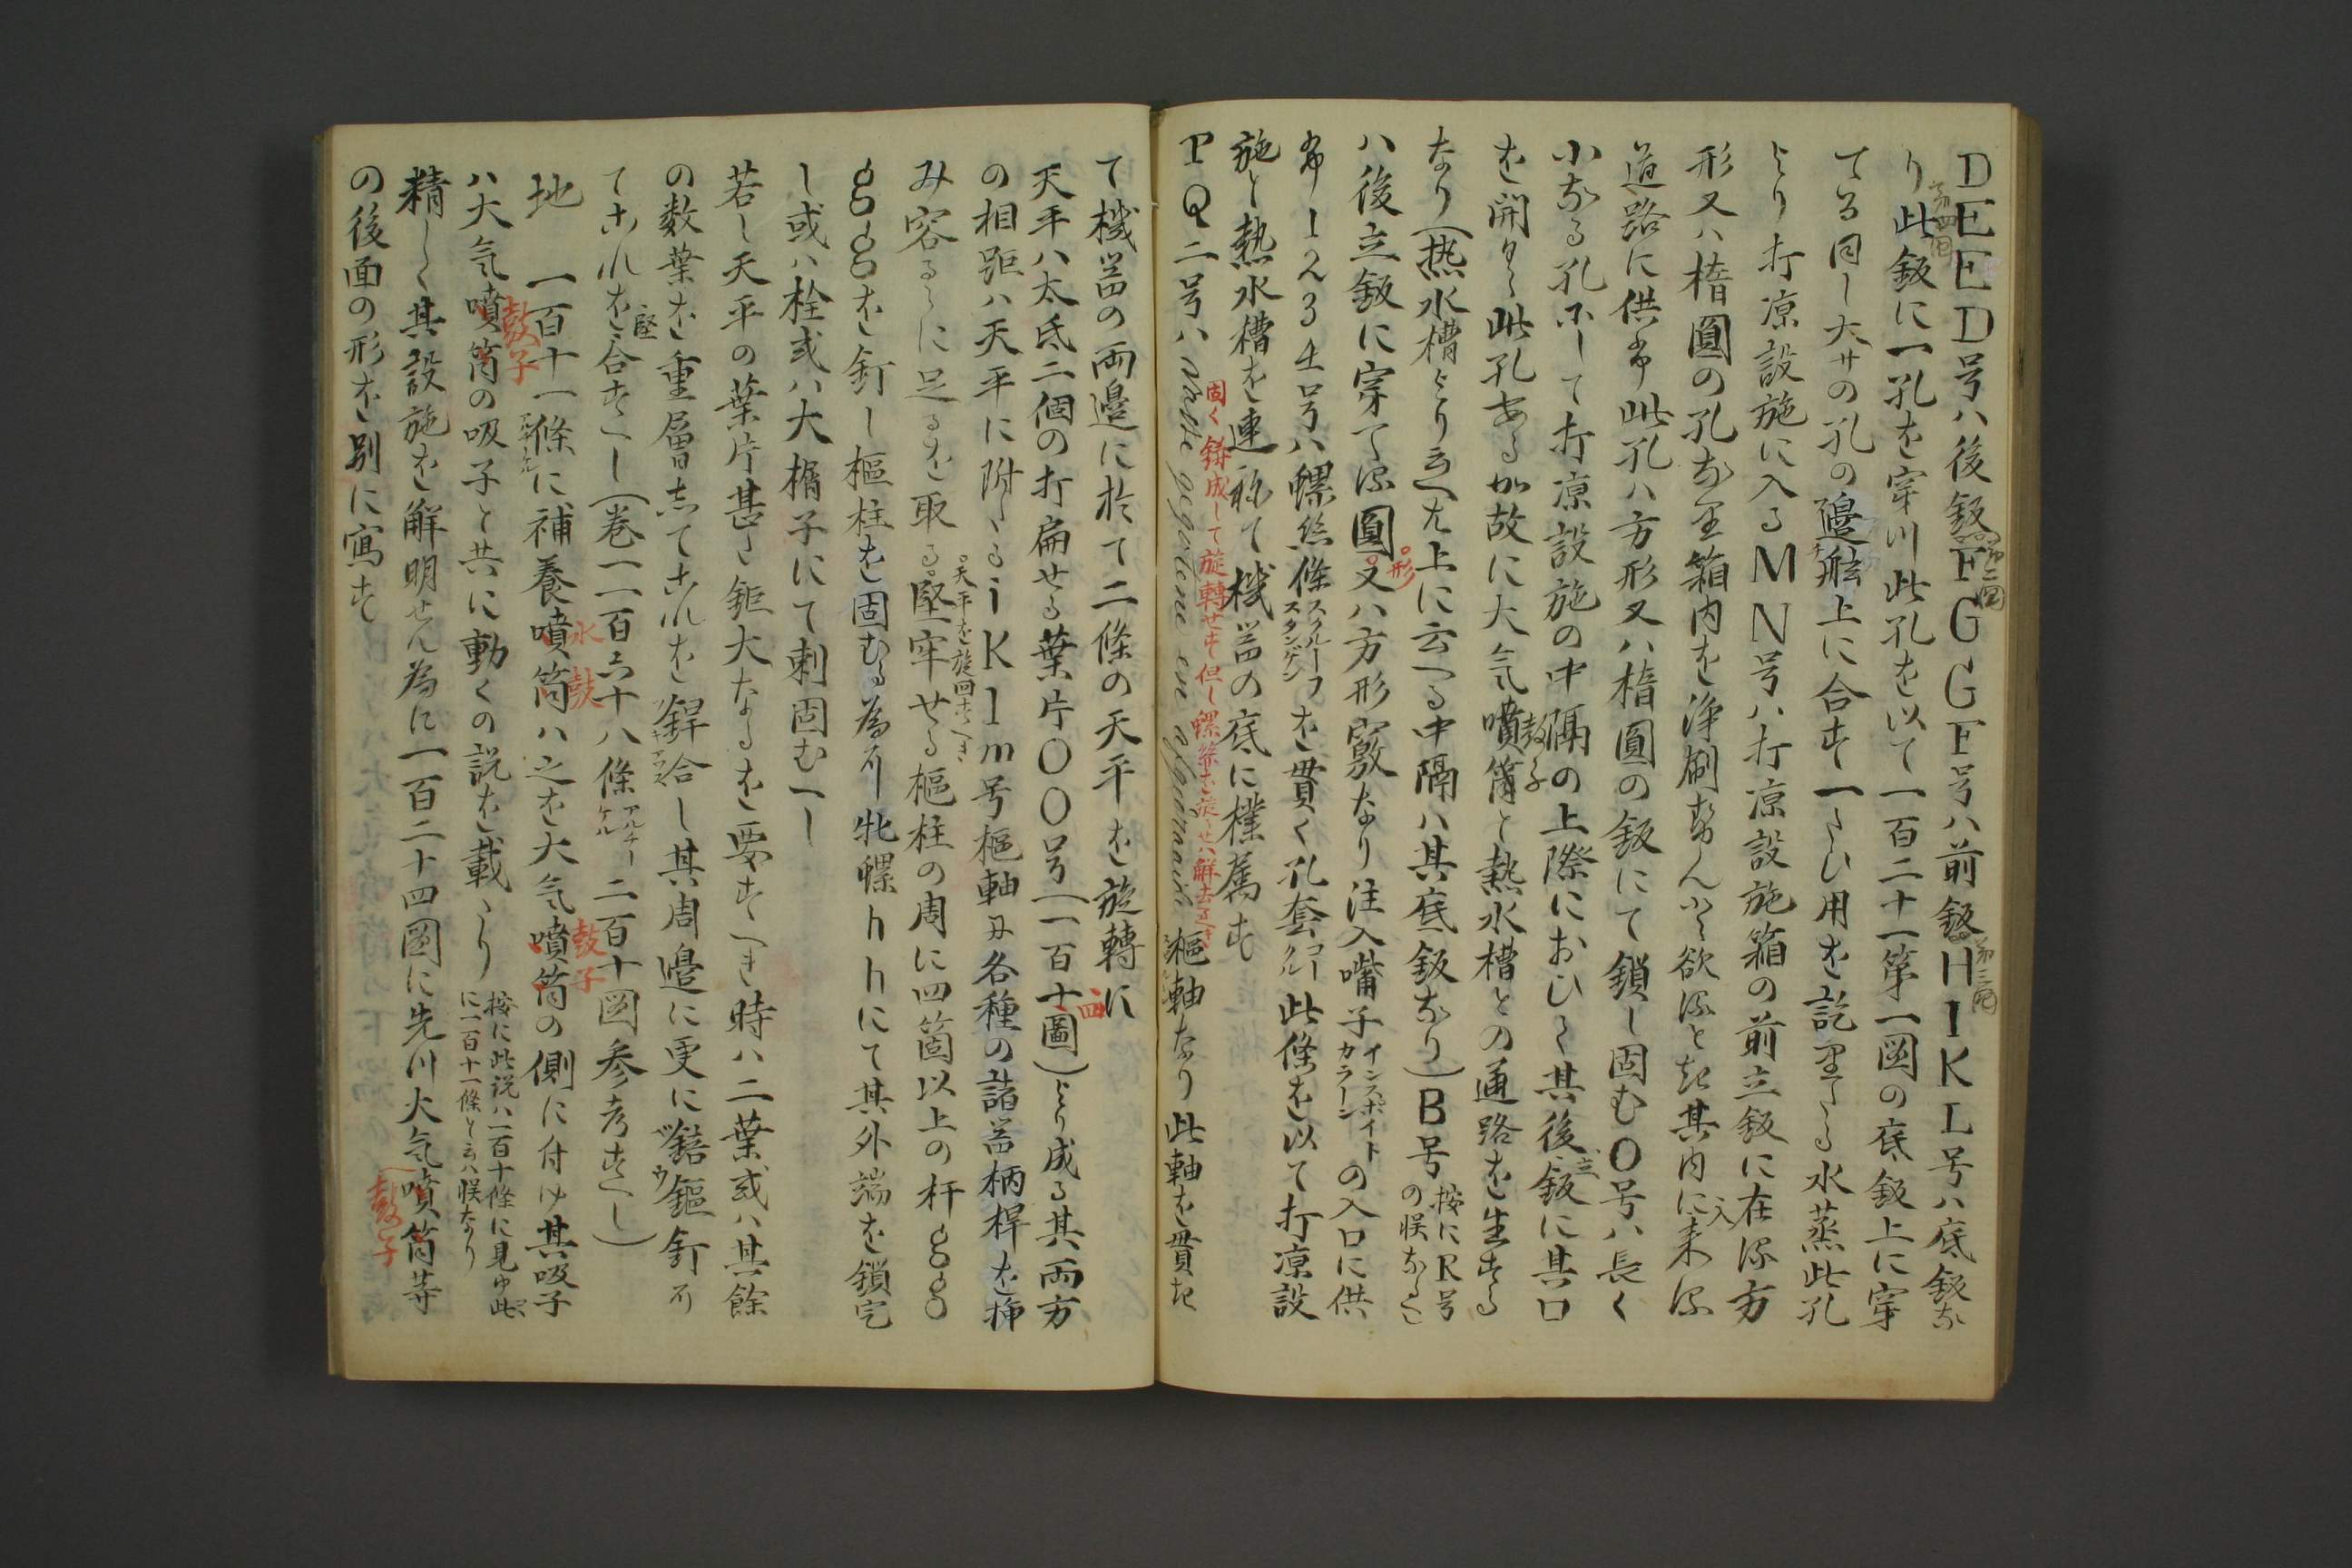 DEED号ハ後鈑第二圖FGGF号ハ前鈑第三圖HIKL号ハ底鈑な
り第四圖此鈑に一孔を穿川此孔を以て一百二十一第一図の底鈑上に穿
てる同し大サの孔の邊舷上に合す一たひ用を訖里たる水蒸此孔
より打凉設施に入るMN号ハ打凉設施箱の前立鈑に在る方
形又ハ楕圓の孔なり箱内を浄刷せんと欲ると起其内に来入る
道路に供す此孔ハ方形又ハ楕圓の鈑にて鎖し固むO号ハ長く
小なる孔にして打凉設施の中隔の上際におひて其後立鈑に其口
を開く此孔ある如故に大気噴筒鼓子と熱水槽との通路を生する
なり(热水槽より上に云へる中隔ハ其底鈑なり)B号按にR号の誤ならん
ハ後立鈑に穿てる圓形又ハ方形竅なり注入嘴子インスポイトカラーンの入口に供
す1234号ハ螺絲條スクルーフスタンゲンを貫く孔套コークル此條を以て打凉設
施と熱水槽を連ねて機器の底に樸属す
固く鋳成して旋轉せす但し螺絲を旋せハ解去るへき
PQ二号ハvaste gegotene en afgedraaide樞軸なり此軸を貫き
て機器の両邊に於て二條の天平を旋轉に
天平ハ太氐二個の打扁せる葉片OO号(一百十四圖)より成る其両方
の相距ハ天平に附たるiKlm号樞軸及各種の諸器柄桿を挿
み容るゝに足るを取る天平を旋回すへき堅牢せる樞柱の周に四箇以上の杆gg
ggを釘し樞柱を固むる為に牝螺hhにて其外端を鎖定
し或ハ栓或ハ大楔子にて刺固むへし
若し天平の葉片甚た鉅大なるを要すへき時ハ二葉或ハ其餘
の数葉を重層して古れを銲合し其周邊に更に鐕鏂釘に
て古れを堅合すへし(巻一一百六十八條アルチーケル二百十図参考すへし)
地 一百十一條アルチケルに補養噴筒水鼓ハ之を大気噴筒鼓子の側に付ゆ其吸子
ハ大気噴筒鼓子の吸子と共に動くの説を載たり按に此説ハ一百十條に見ゆ此に一百十一條と云ハ誤なり
精しく其設施を解明せん為に一百二十四図に先川大気噴筒鼓子等
の後面の形を別に寫す